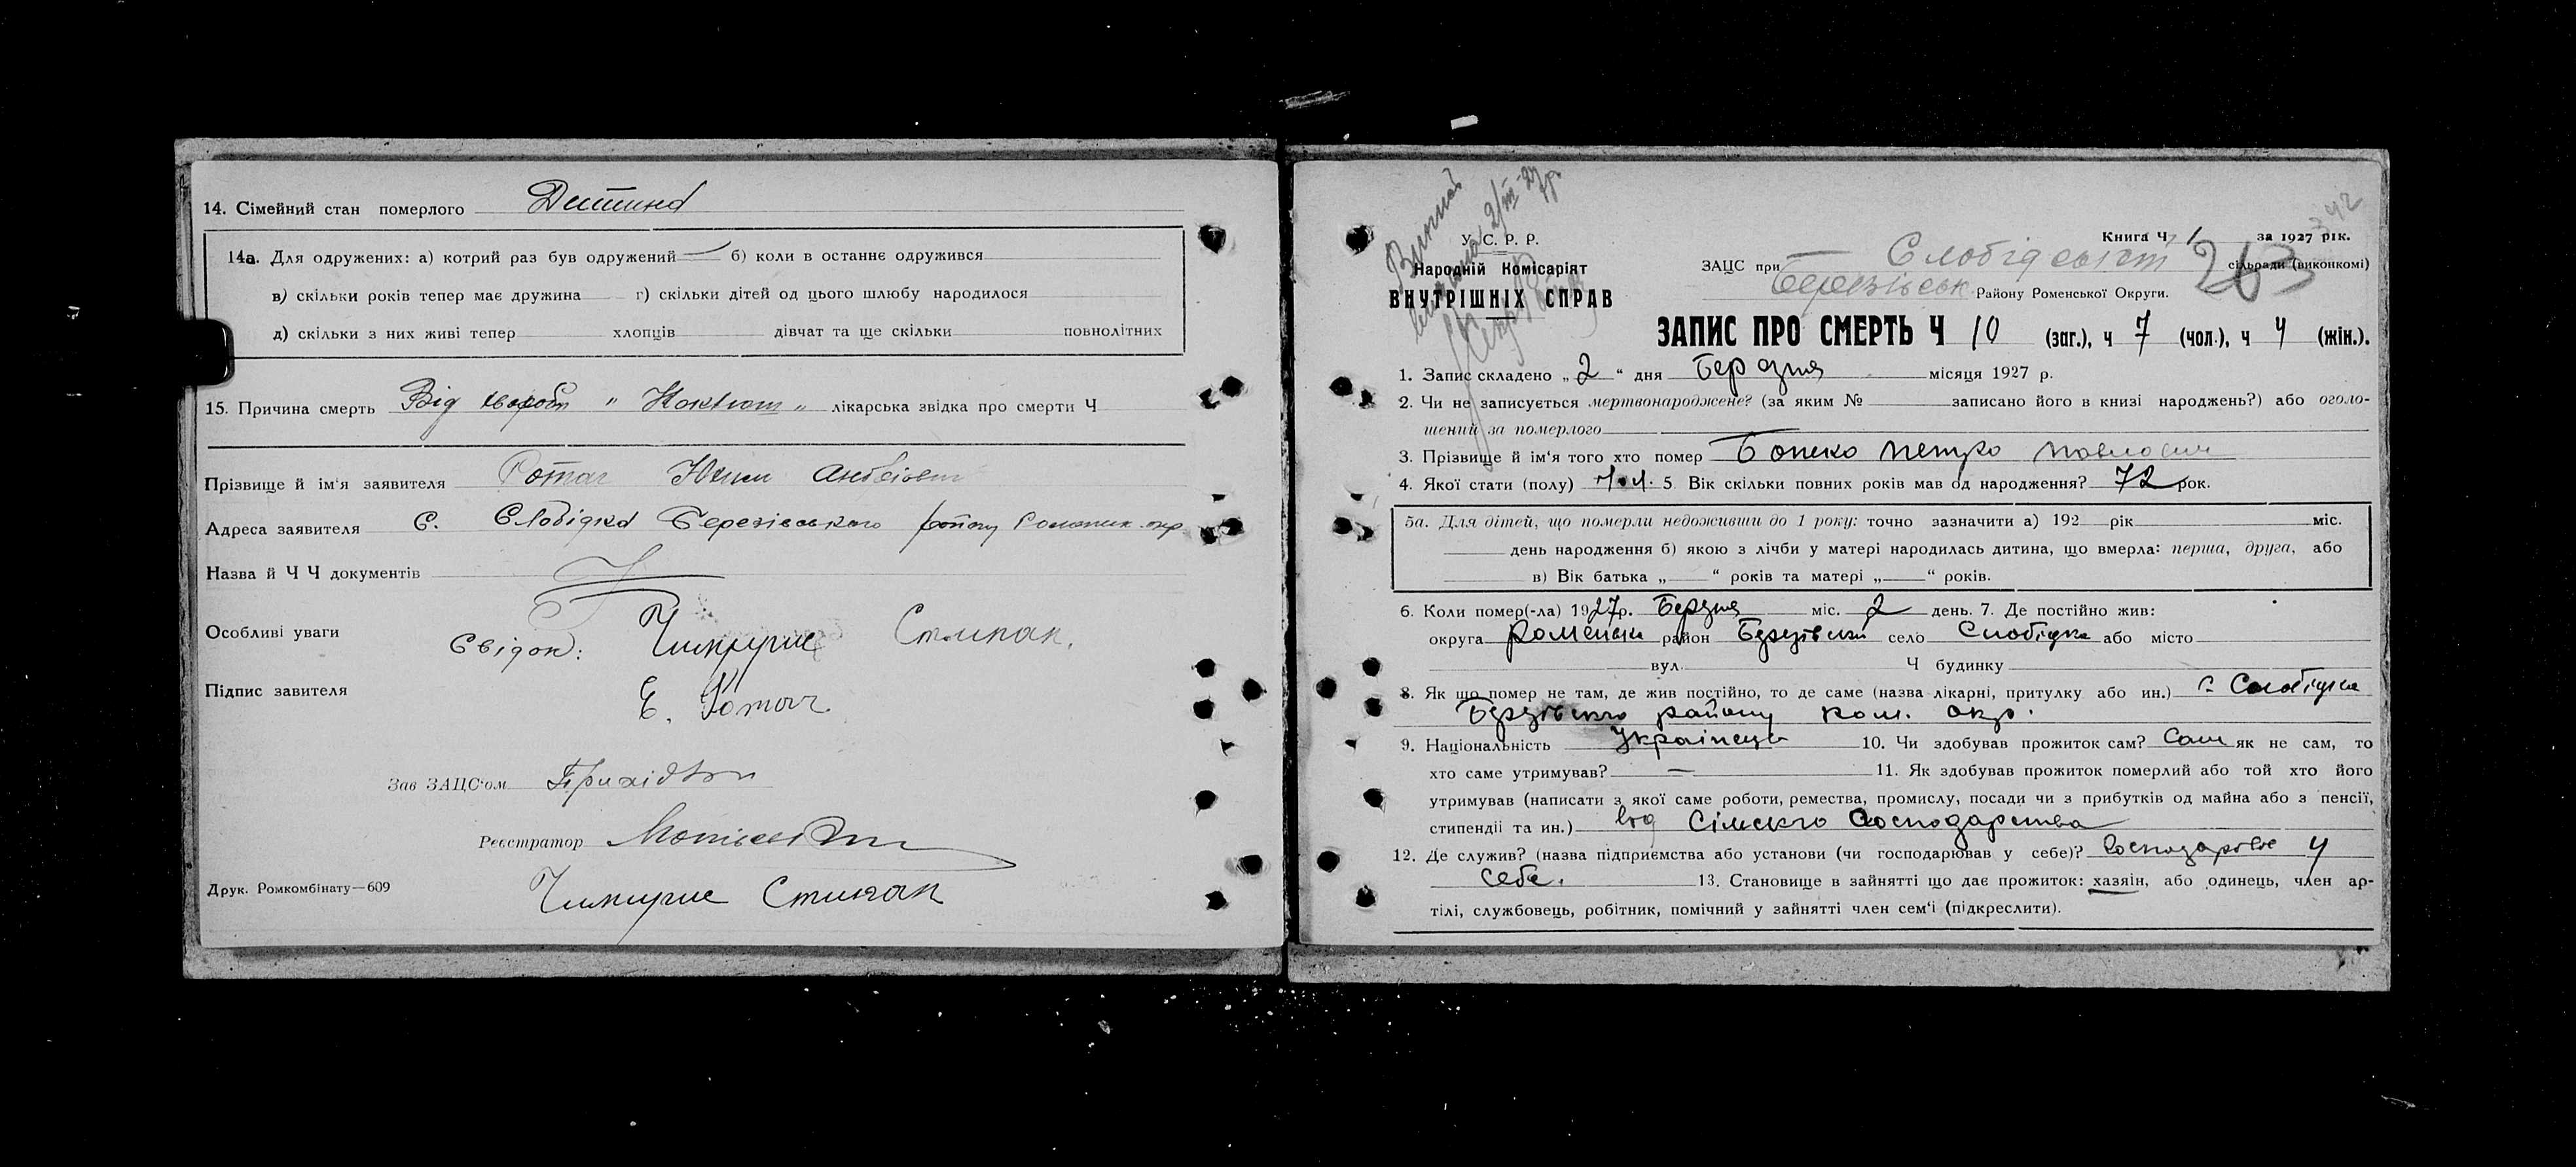 14. Сімейний стан померлого Дитина
14а. Для одружених: а) котрий раз був одружений — б) коли в останнє одружився
в) скільки років тепер має дружина г) скільки дітей од цього шлюбу народилося
д) скільки з них живі тепер хлопців дівчат та ще скільки повнолітних
15. Причина смерть Від хвороби „ Коклюш „ лікарська звідка про смерти Ч
Прізвище й ім'я заявителя Ротач
Адреса заявителя С. Слобідка Березівського району Роменск. окр
Назва й Ч Ч документів
Особливі уваги
Свідок: Степан.
Підпис завителя
Є. Ротач
Зав ЗАЦС'ом Прихідько
Реєстратор
Степан
Друк. Ромкомбінату—609
У. С. Р. Р.
Народній Комісаріят
ВНУТРІШНІХ СПРАВ
242
Книга Ч 1 за 1927 рік.
ЗАЦС при Слобідській сільради (виконкомі)
Березівськ. Району Роменської Округи.
263
ЗАПИС ПРО СМЕРТЬ Ч 10 (заг.), ч 7 (чол.), ч 4 (жін.).
1. Запис складено „2“ дня Березня місяця 1927 р.
2. Чи не записується мертвонароджене? (за яким № записано його в книзі народжень?) або оголо-
шений за померлого
3. Прізвище й ім'я того хто помер Бопко Петро Павлович
4. Якої стати (полу) чол. 5 Вік скільки повних років мав од народження? 72 рок.
5а. Для дітей, що померли недоживши до 1 року: точно зазначити а) 192 рік міс.
день народження б) якою з лічби у матері народилась дитина, що вмерла: перша, друга, або
в) Вік батька „ “ років та матері „ “ років.
6. Коли помер(-ла) 1927р. Березня міс. 2 день. 7. Де постійно жив:
округа Роменськ район Березівський село Слобідка або місто
вул. Ч будинку
8. Як що помер не там, де жив постійно, то де саме (назва лікарні, притулку або ин.) с. Слобідка
Березівского району Ром. окр.
9. Національність Українець 10. Чи здобував прожиток сам? Сам як не сам, то
хто саме утримував? — 11. Як здобував прожиток померлий або той хто його
утримував (написати з якої саме роботи, ремества, промислу, посади чи з прибутків од майна або з пенсії,
стипендії та ин.) від Сільского господарства
12. Де служив? (назва підприємства або установи (чи господарював у себе)? господарював у
себе. 13. Становище в зайнятті що дає прожиток: хазяін, або одинець, член ар-
тілі, службовець, робітник, помічний у зайнятті член сем'і (підкреслити).